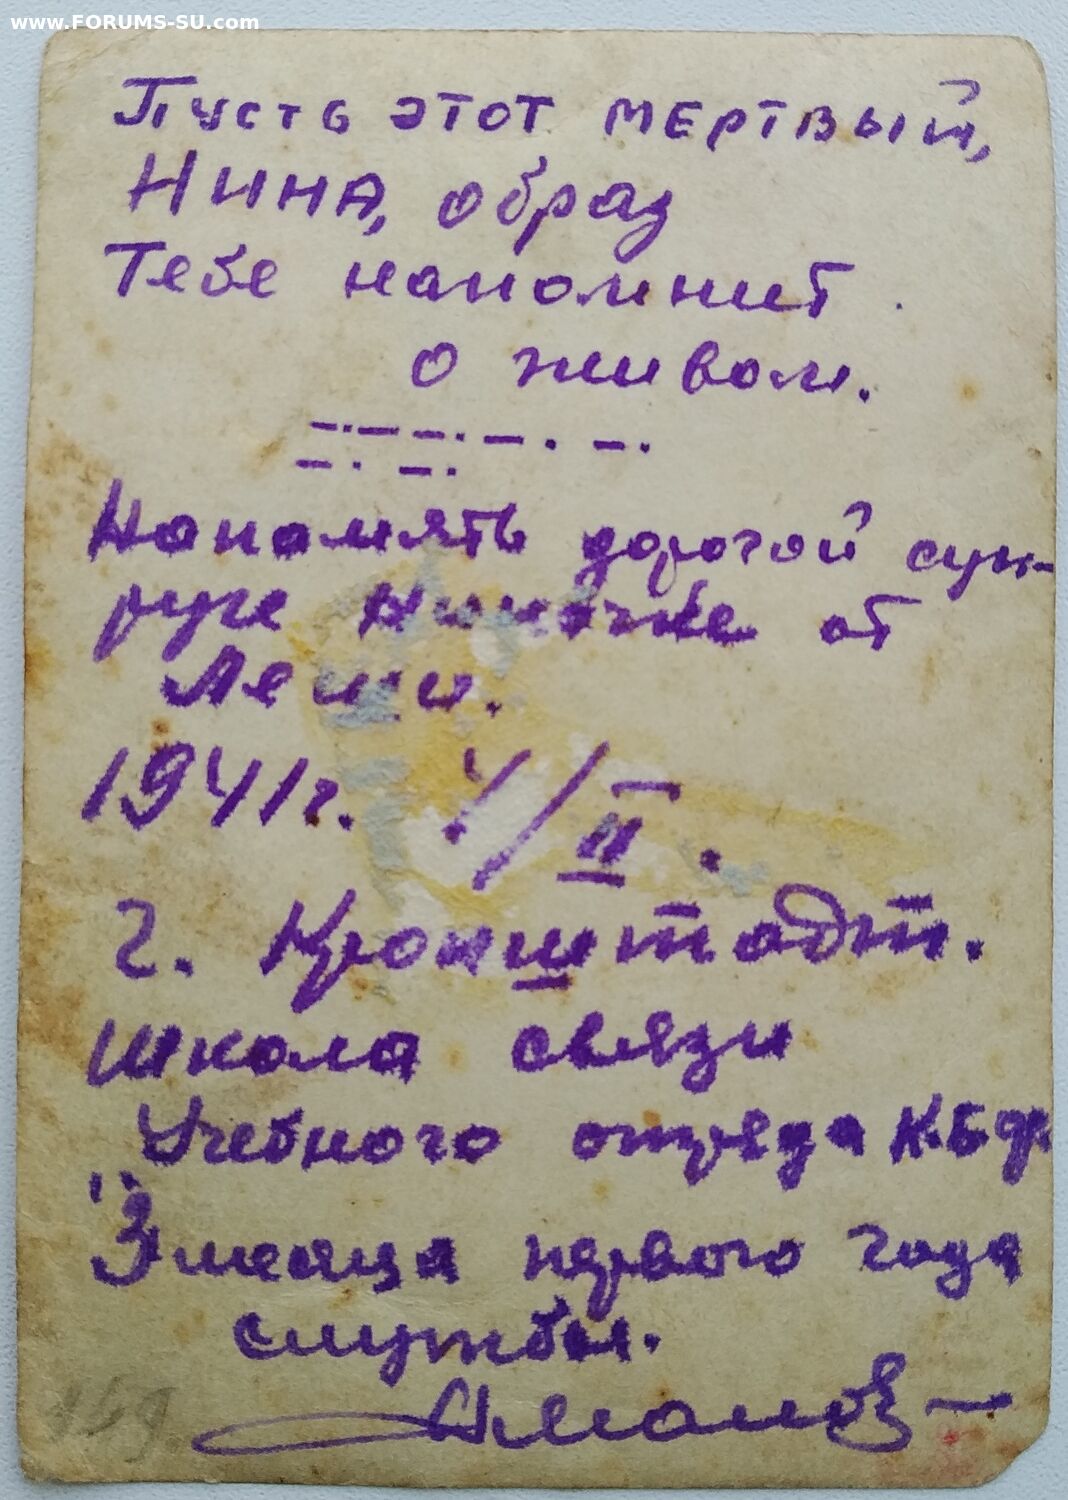 www.FORUMS-SU.com
Пусть этот мертвый,
Нина, образ
Тебе напомнит
о живом.
Напомять дорогой суп-
руге Ниночке от
Леши.
1941г. 4/II.
г. Кронштадт.
Школа связи
Учебного отряда К.Б.Ф.
3 месяца первого года
службы.